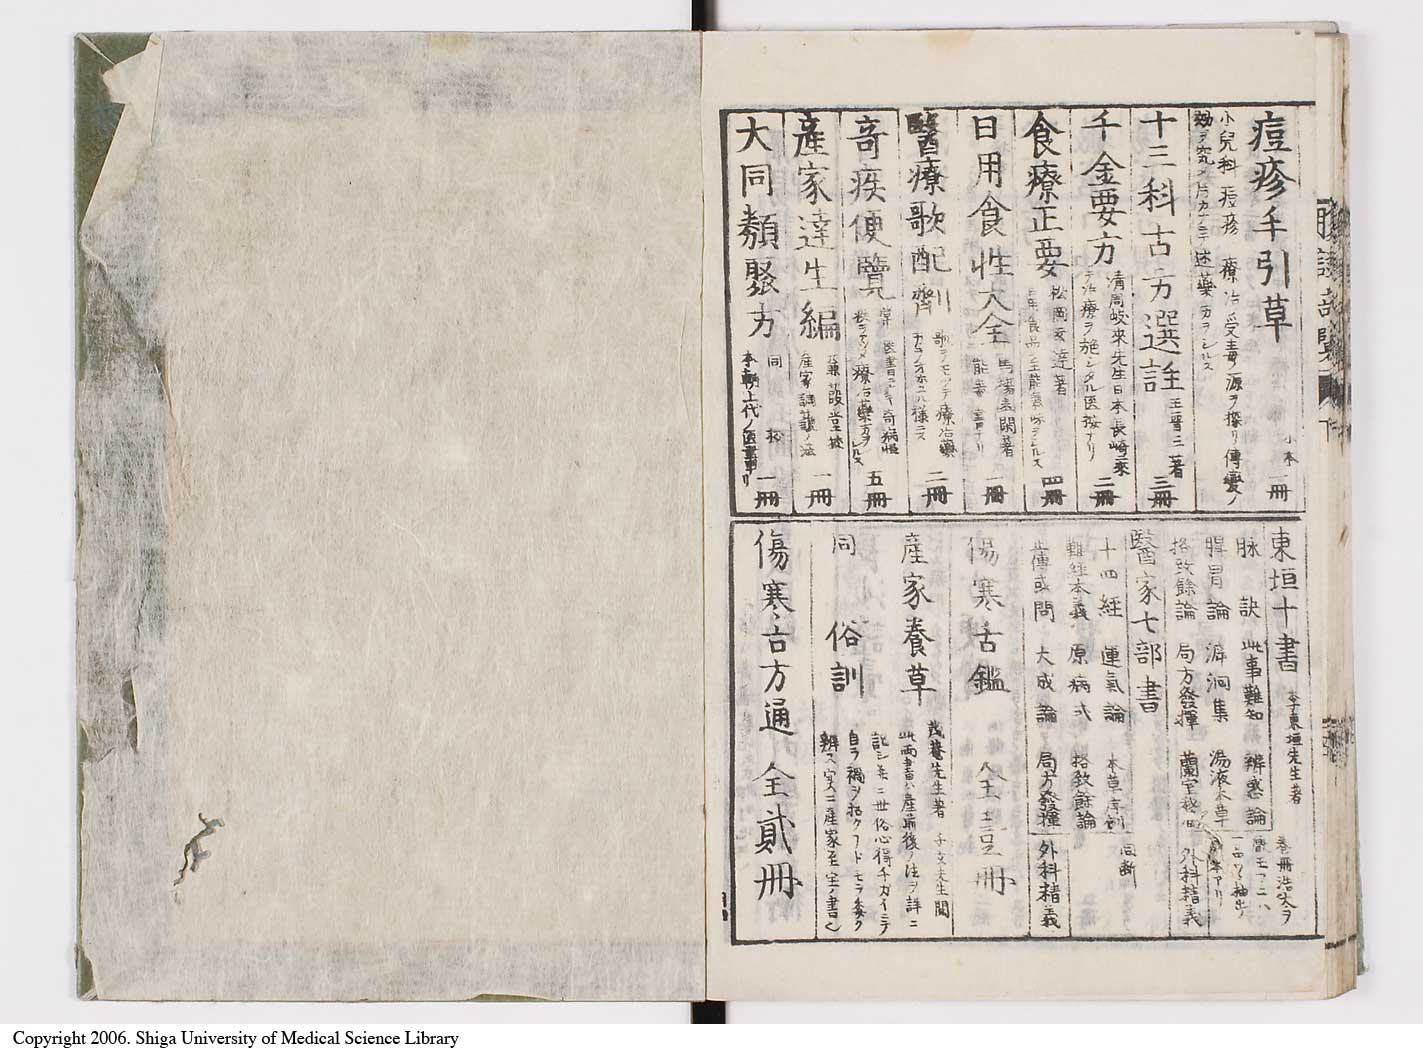 痘疹手引草 小本一冊
小兒科痘疹療治受毒ノ源ヲ探リ傳變ノ
十三科古方選註 王晋三著 三冊
千金要方 清周岐來先生日本長崎ニ來
テ治療ヲ施シタル医按ナリ 二冊
食療正要 松岡玄達著 四冊
日用食性大全 馬場玄閑著
能毒書ナリ 一冊
醫療歌配劑 歌ヲモツテ療治藥 二冊
奇疾便覽 五冊
產家達生編 蒹葭堂校 一冊
大同類聚方 同校
本朝上代ノ医書ナリ 一冊
東垣十書 李東垣先生著 巻冊浩大ヲ
脉訣 此事難知 辨惑論
脾胃論 湃洄集 湯液本草
格致餘論 局方發揮 蘭室秘 外科精義
醫家七部書 同断
十四經 運氣論 本草序例
難經本義 原病式 格致餘論
大成論 局方發揮 外科精義
傷寒舌鑑 全壹冊
產家養草 茂菴先生著 子文先生閲
此両書ハ產前後ノ法ヲ詳ニ
同 俗訓 記シ并ニ世俗心得チカイニテ
自ラ禍ヲ招クヿドモヲ委ク
辨ス実ニ產家至宝ノ書也
傷寒古方通 全貳冊